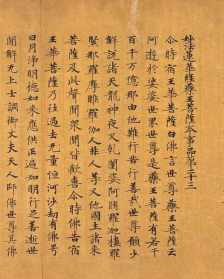 妙法蓮華經藥王菩薩本事品第二十三
尒時宿王華菩薩白佛言世尊藥王菩薩云
何遊於娑婆世界世尊是藥王菩薩有若干
百千万億那由他難行苦行善哉世尊願少
解說諸天龍神夜叉乾闥婆阿脩羅迦樓羅
緊那羅摩睺羅伽人非人等又他國土諸來
菩薩及此聲聞衆聞皆歡喜尒時佛告宿
王華菩薩乃往過去無量恒河沙劫有佛号
日月淨明德如來應供正遍知明行足善逝世
間解無上士調御丈夫天人師佛世尊其佛